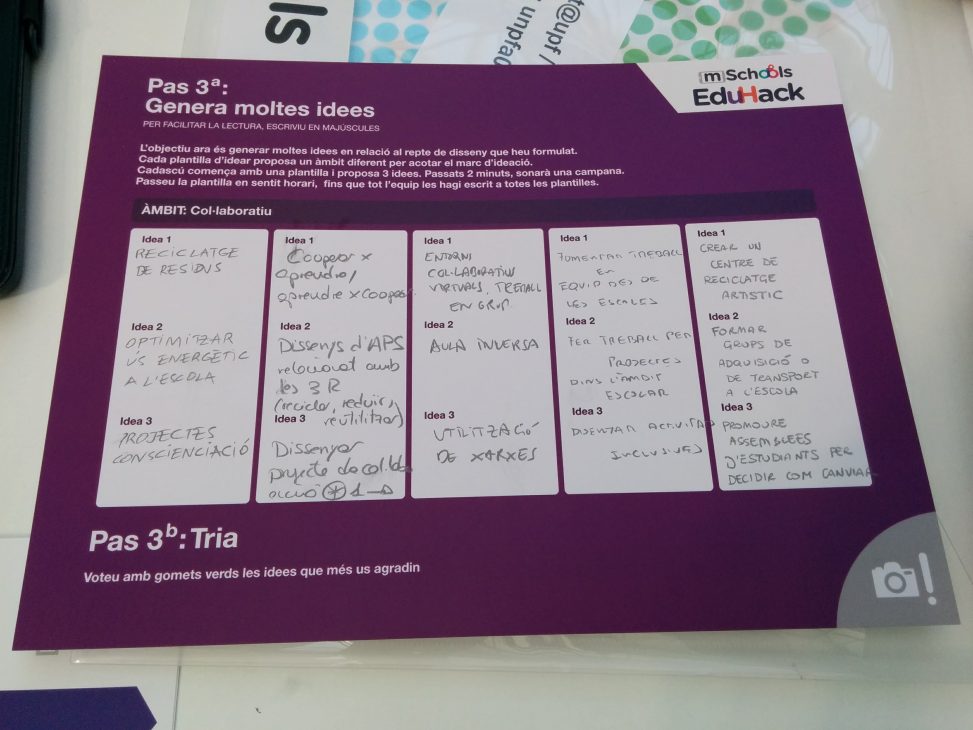 ls
t@upf /
unpfa
Pas 3ª:
Genera moltes idees
PER FACILITAR LA LECTURA, ESCRIVIU EN MAJÚSCULES
{m}Schools
EduHack
L'objectiu ara és generar moltes idees en relació al repte de disseny que heu formulat.
Cada plantilla d'idear proposa un àmbit diferent per acotar el marc d'ideació.
Cadascú comença amb una plantilla i proposa 3 idees. Passats 2 minuts, sonarà una campana.
Passeu la plantilla en sentit horari, fins que tot l'equip les hagi escrit a totes les plantilles.
ÀMBIT: Col·laboratiu
Idea 1
RECICLATGE
DE RESIDUS
Idea 2
OPTIMITZAR
ÚS ENERGÈTIC
A L'ESCOLA
Idea 3
PROJECTES
CONSCIENCIACIÓ
Idea 1
Cooperar x
aprendre /
aprendre x Cooperar
Idea 2
Dissenys d'APS
relacionat amb
les 3 R
(reciclar, reduir i
reutilitzar)
Idea 3
Dissenyar
projecte de col·lab
acció
Idea 1
ENTORNS
COL·LABORATIUS
VIRTUALS, TREBALL
EN GRUP
Idea 2
AULA INVERSA
Idea 3
UTILITZACIÓ
DE XARXES
Idea 1
FOMENTAR TREBALL
EN
EQUIP DES DE
LES ESCALES
Idea 2
FER TREBALL PER
PROJECTES
DINS L'ÀMBIT
ESCOLAR
Idea 3
DISENYAR ACTIVITAS
INCLUSIVES
Idea 1
CREAR UN
CENTRE DE
RECICLATGE
ARTISTIC
Idea 2
FORMAR
GRUPS DE
ADQUISICIÓ O
DE TRANSPORT
A L'ESCOLA
Idea 3
PROMOURE
ASSEMBLEES
D'ESTUDIANTS PER
DECIDIR COM CANVIAR
Pas 3ᵇ: Tria
Voteu amb gomets verds les idees que més us agradin